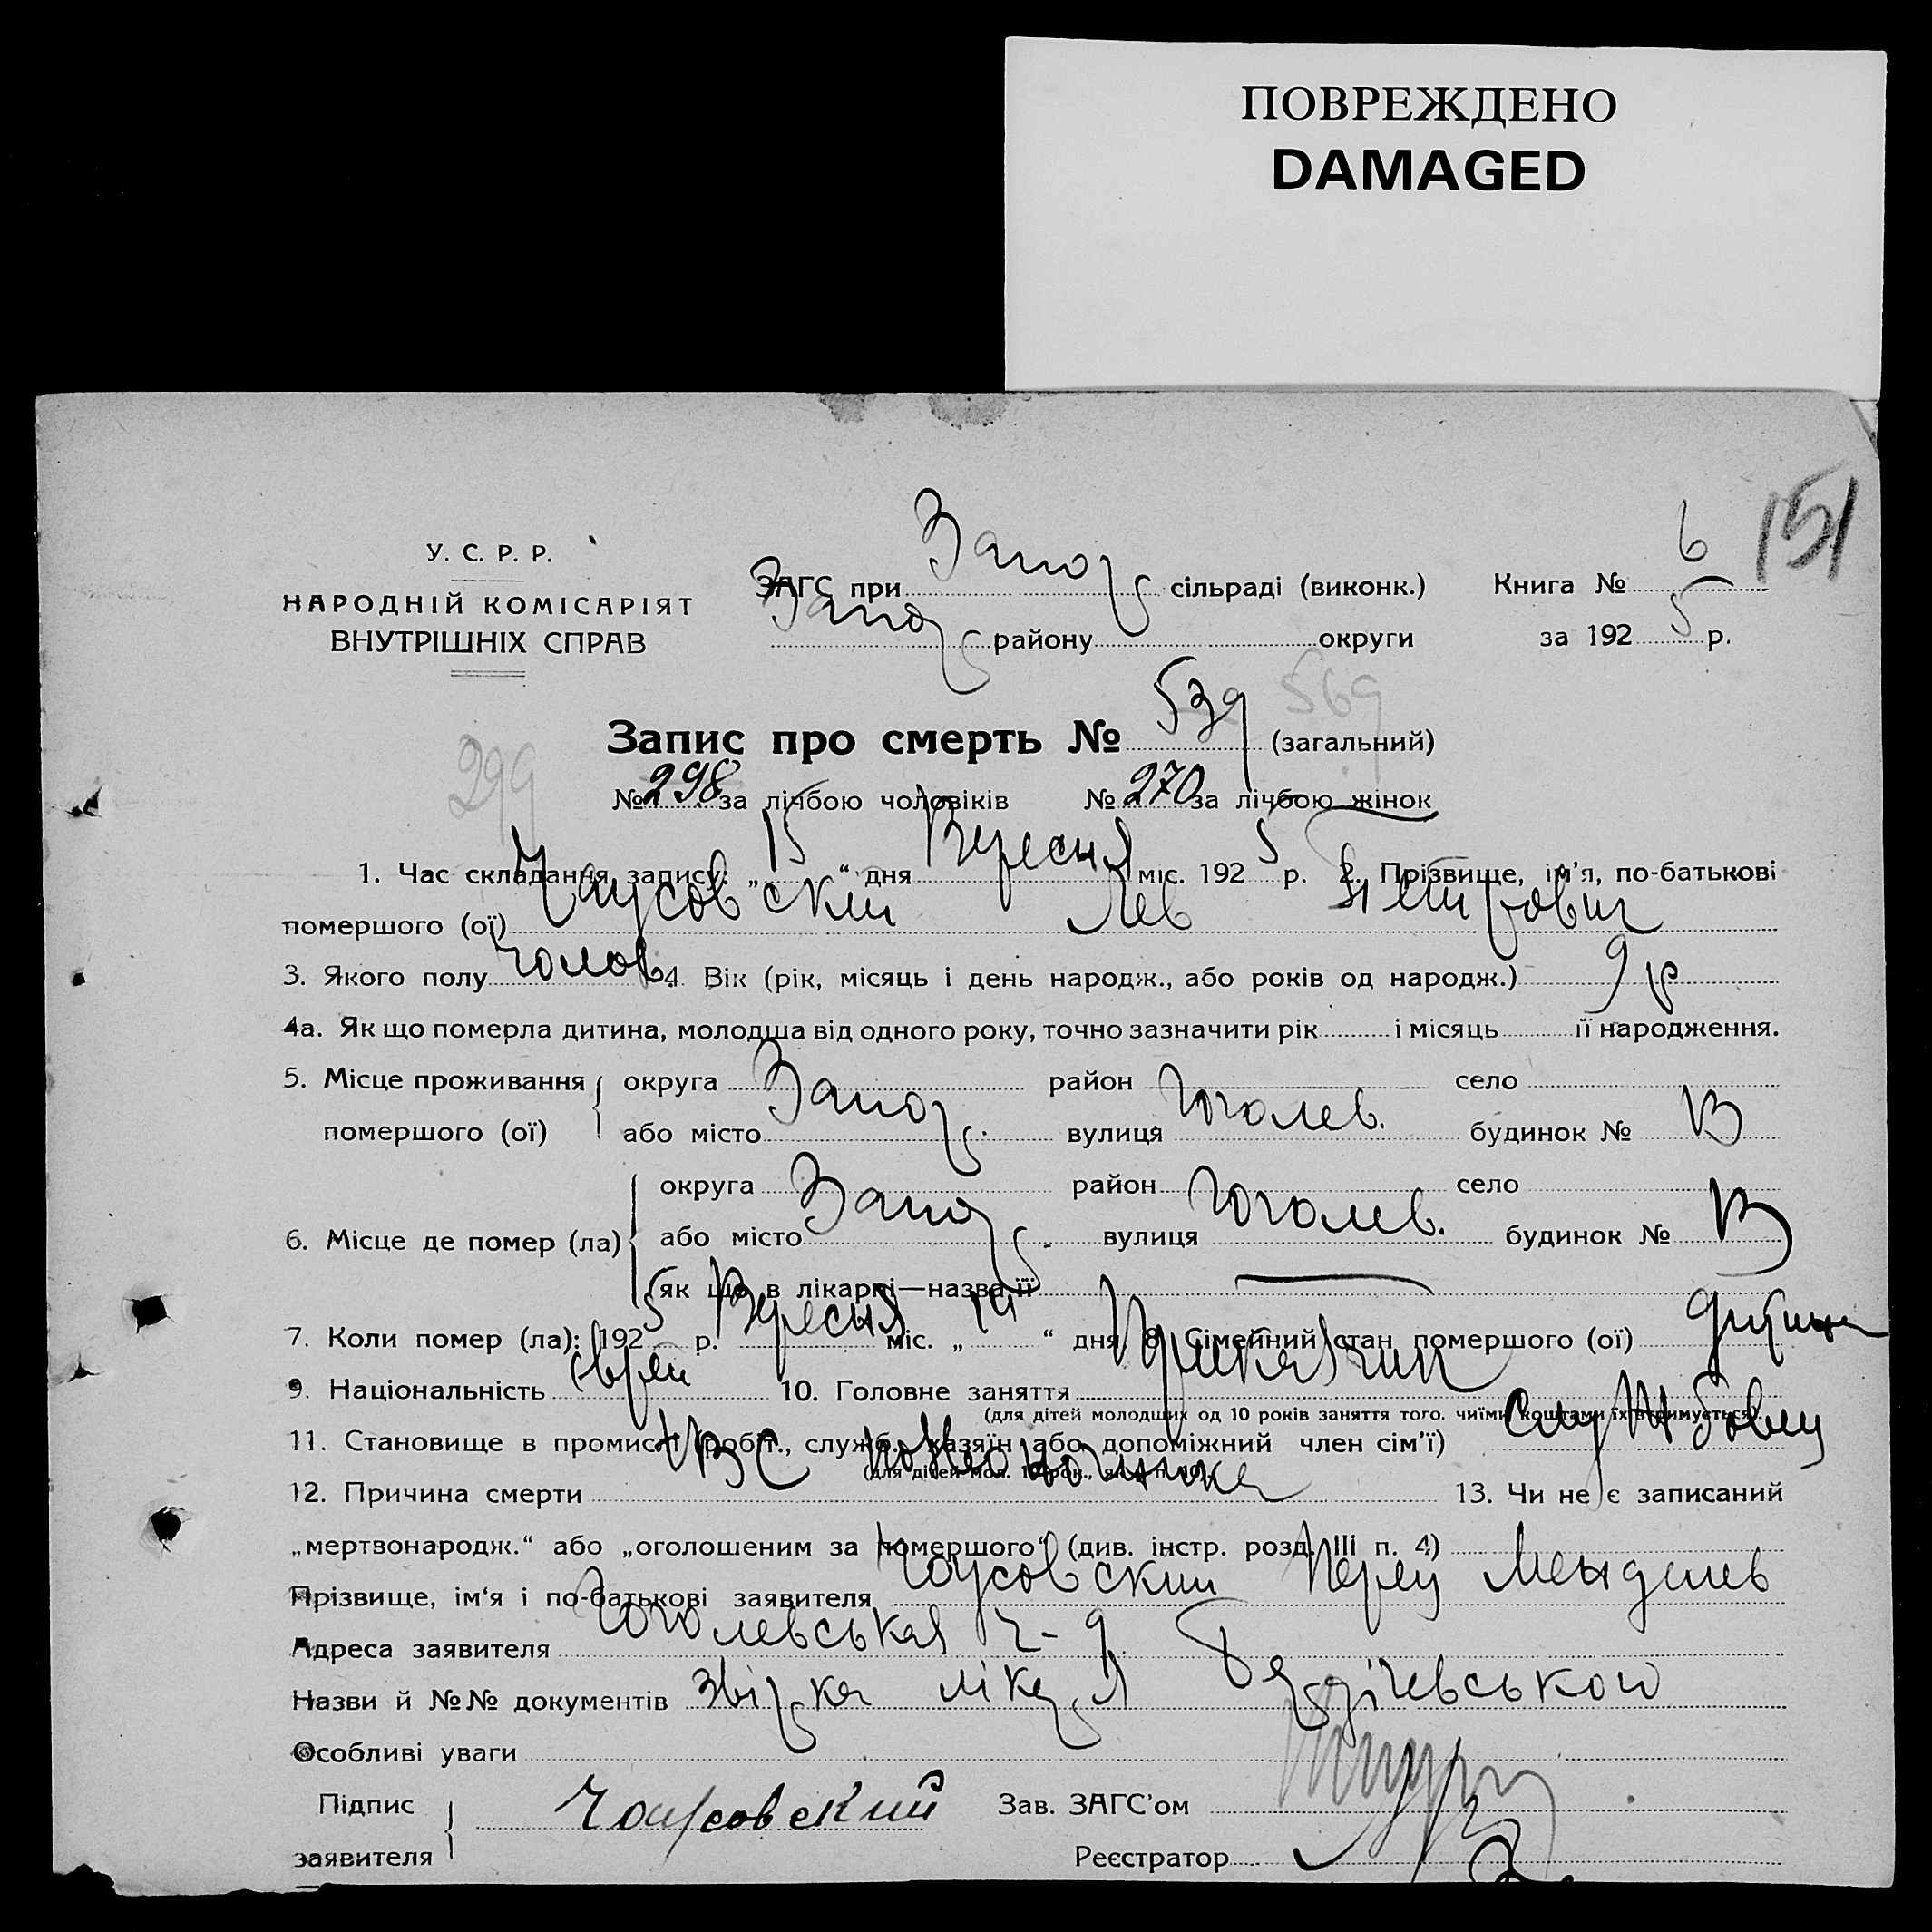 ПОВРЕЖДЕНО
DAMAGED
151
У. С. Р. Р.
НАРОДНІЙ КОМІСАРІЯТ
ВНУТРІШНІХ СПРАВ
ЗАГС при Запоз сільраді (виконк.) Книга № 6
Запоз району округи за 192 5 р.
Запис про смерть № 539 (загальний) 569
299 № 298 за лічбою чоловіків № 270 за лічбою жінок
1. Час складання запису: „ 15 “ дня Вересня міс. 192 5 р. 2. Прізвище, ім'я, по-батькові
помершого (ої) Чаусовский Лев
3. Якого полу чолов 4. Вік (рік, місяць і день народж., або років од народж.) 9 р
4а. Як що померла дитина, молодша від одного року, точно зазначити рік і місяць її народження.
5. Місце проживання округа район село
помершого (ої) або місто Запоз. вулиця Гоголев. будинок №
округа район село
6. Місце де помер (ла) або місто Запоз. вулиця Гоголев. будинок №
як що в лікарні—назва її —
7. Коли помер (ла): 192 5 р. Вересня міс. „ 14 “ дня 8. Сімейний стан помершого (ої) дитина
9. Національність єврей 10. Головне заняття
(для дітей молодших од 10 років заняття того, чиїми коштами їх втримується).
11. Становище в промислі (робіт., служб., хазяїн або допоміжний член сім'ї) службовец
12. Причина смерти 13. Чи не є записаний
„мертвонародж.“ або „оголошеним за помершого“ (див. інстр. розд. III п. 4)
Прізвище, ім'я і по-батькові заявителя Чаусовский Перец Менделев
Адреса заявителя Гоголевськая ч-9
Назви й №№ документів звізка лікаря Бердічевського
Особливі уваги
Підпис Чаусовский Зав. ЗАГС'ом
заявителя Реєстратор